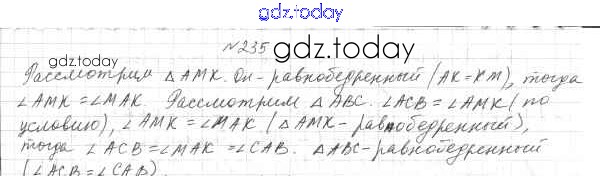 gdz.today
№235
gdz.today
Рассмотрим △AMK. Он - равнобедренный (AK=KM), тогда
∠AMK = ∠MAK. Рассмотрим △ABC. ∠ACB = ∠AMK (по
условию), ∠AMK = ∠MAK (△AMK - равнобедренный),
тогда ∠ACB = ∠MAK = ∠CAB. △ABC - равнобедренный
(∠ACB = ∠CAB).